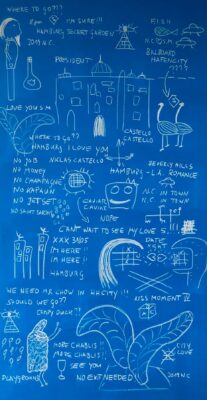 WHERE TO GO???
8pm
I'M SURE!!!
HAMBURG SECRET GARDEN
2019 N.C.
FISH
PRESIDENT
LOVE YOU SM
WHERE TO GO??
HAMBURG I LOVE YOU
NIKLAS CASTELLO
CASTELLO
CASTELLO
HAMBURG
NO JOB
NO MONEY
NO CHAMPAGNE
NO KAPAUN
NO JETSET
NO SAINT
CAVIAR
NOPE
BEVERLY HILLS
- L.A. ROMANCE
N.C. IN TOWN
N.C. IN TOWN
CAN'T WAIT TO SEE MY LOVE S.
XXX BABS
I'M HERE!!
I'M HERE!!
HAMBURG
DATE
NIGHT
WE NEED MR CHOW IN HH CITY!!!
SHOULD WE GO??
CRISPY DUCK??
KISS MOMENT II
MORE CHABLIS!!
MORE CHABLIS!!
SEE YOU
NO EXIT NEEDED!!
CITY
LOVE
2019 N.C
PLAYGROUND